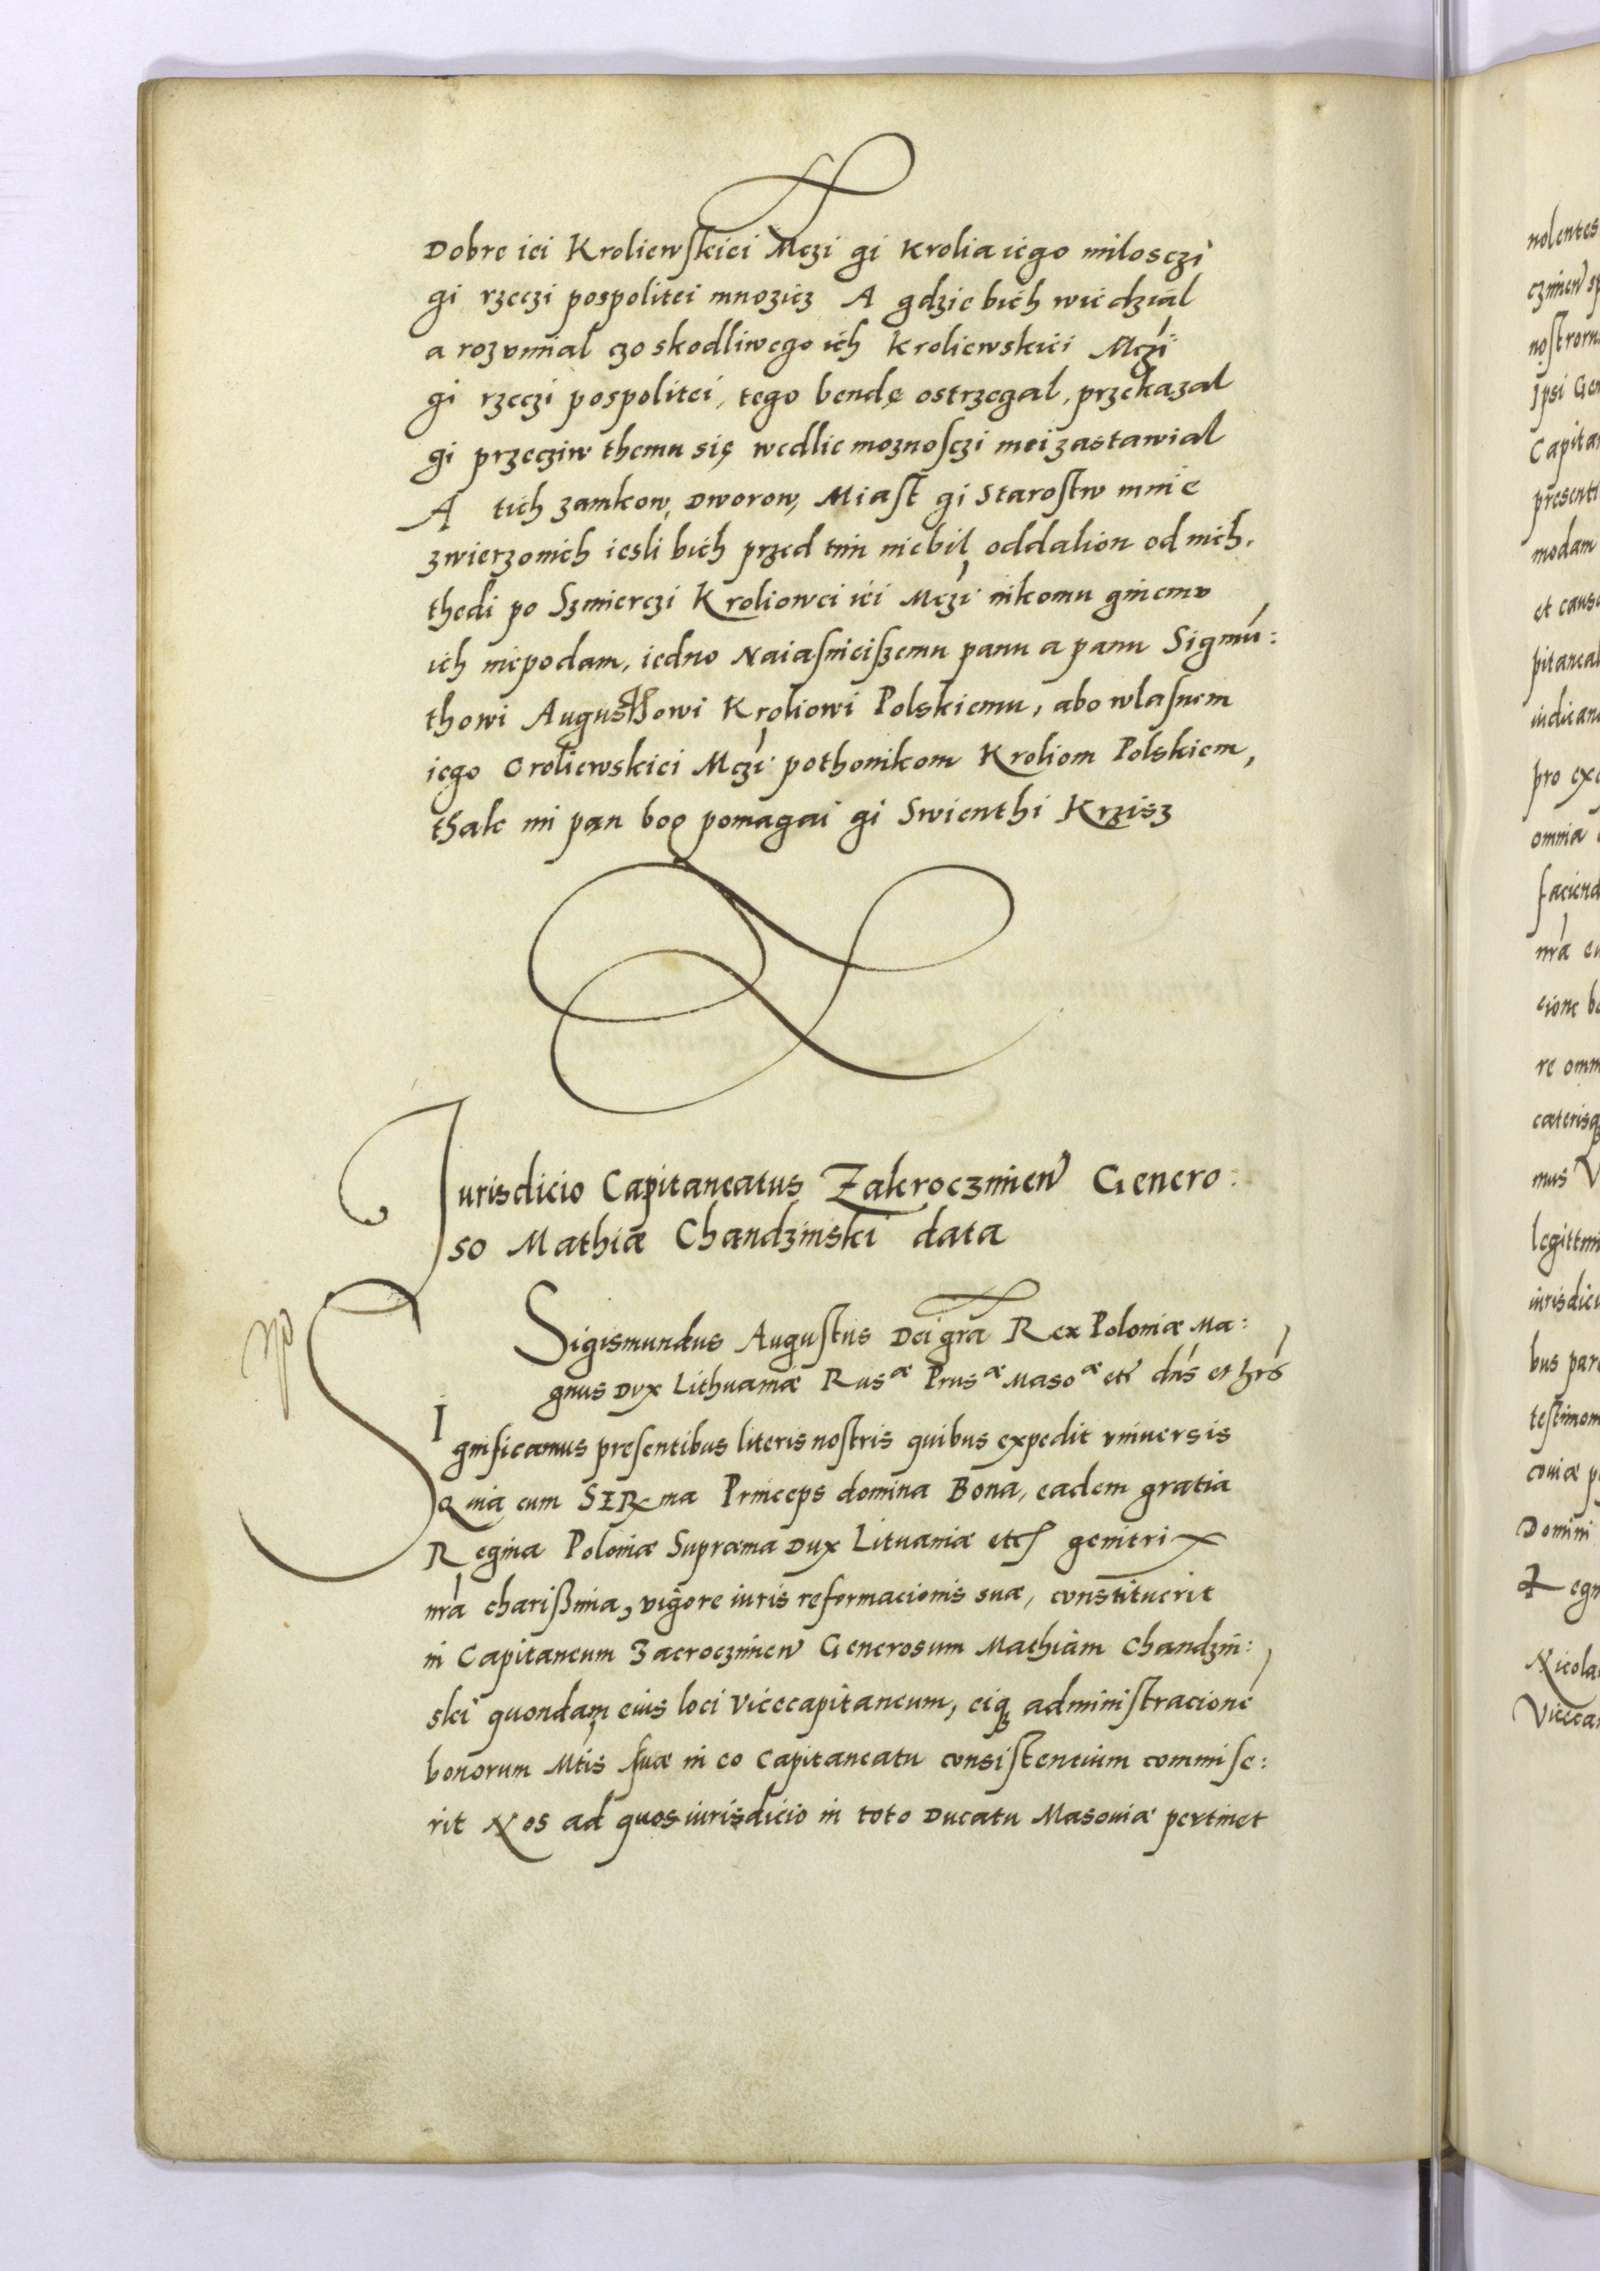 Dobre iei Kroliewskiei Mczi gi Krolia iego milosczi
gi rzeczi pospolitei mnozicz A gdzie bich wiedzial
a rozvmial czo skodliwego ich Kroliewskiei Mczi
gi rzeczi pospolitei, tego bendę ostrzegal, przekazal
gi przecziw themu się wedlie moznosczi mei zastawial
A tich zamkow, Dworow, Miast gi Starostw mnie
zwierzonich iesli bich przed tim niebil oddalion od nich,
thedi po Szmierczi Kroliowei iei Mczi nikomu ginemv
ich niepodam, iedno Naiasnieiszemu panu a panu Sigmú:
thowi Augusthowi Kroliowi Polskiemu, abo wlasnem
iego Croliewskiei Mczi pothomkom Kroliom Polskiem,
thak mi pan bog pomagai gi Swienthi Krzisz
Iurisdicio Capitaneatus Zakroczimien Genero:
so Mathiæ Chandzinski data
Sigismundus Augustus Dei gra Rex Poloniæ Ma:
gnus Dux Lithuaniæ Rusæ Prusæ Masoæ etc dns et hrs
SIgnificamus presentibus literis nostris quibus expedit vniversis
Quia cum SERma Princeps domina Bona, eadem gratia
Regina Poloniæ Supræma Dux Lituaniæ etc genitrix
nra charissima, vigore iuris reformacionis suæ, constituerit
in Capitaneum Zacroczimien Generosum Mathiam Chandzin:
ski quondam eius loci Vicecapitaneum, eiq administracione
bonorum Mtis suæ in eo Capitaneatu consistencium commise:
rit Nos ad quos iurisdicio in toto Ducatu Masoviæ pertinet
nolentes
nostroru
Ipsi Gen
Capita
presenti
modam
et caus
pitanea
iudican
pro ex
omnia
faciend
nra
cione b
re omn
cæterisq
mus V
legittim
iurisdici
bus par
testimon
coviæ p
Domini
Regn
Nicola
Viceca